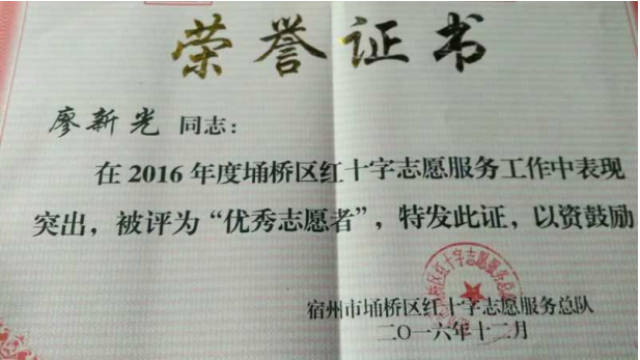 荣誉证书
廖新光 同志：
在2016年度埇桥区红十字志愿服务工作中表现
突出，被评为“优秀志愿者”，特发此证，以资鼓励
宿州市埇桥区红十字志愿服务总队
二〇一六年十二月